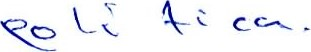 poli tica.